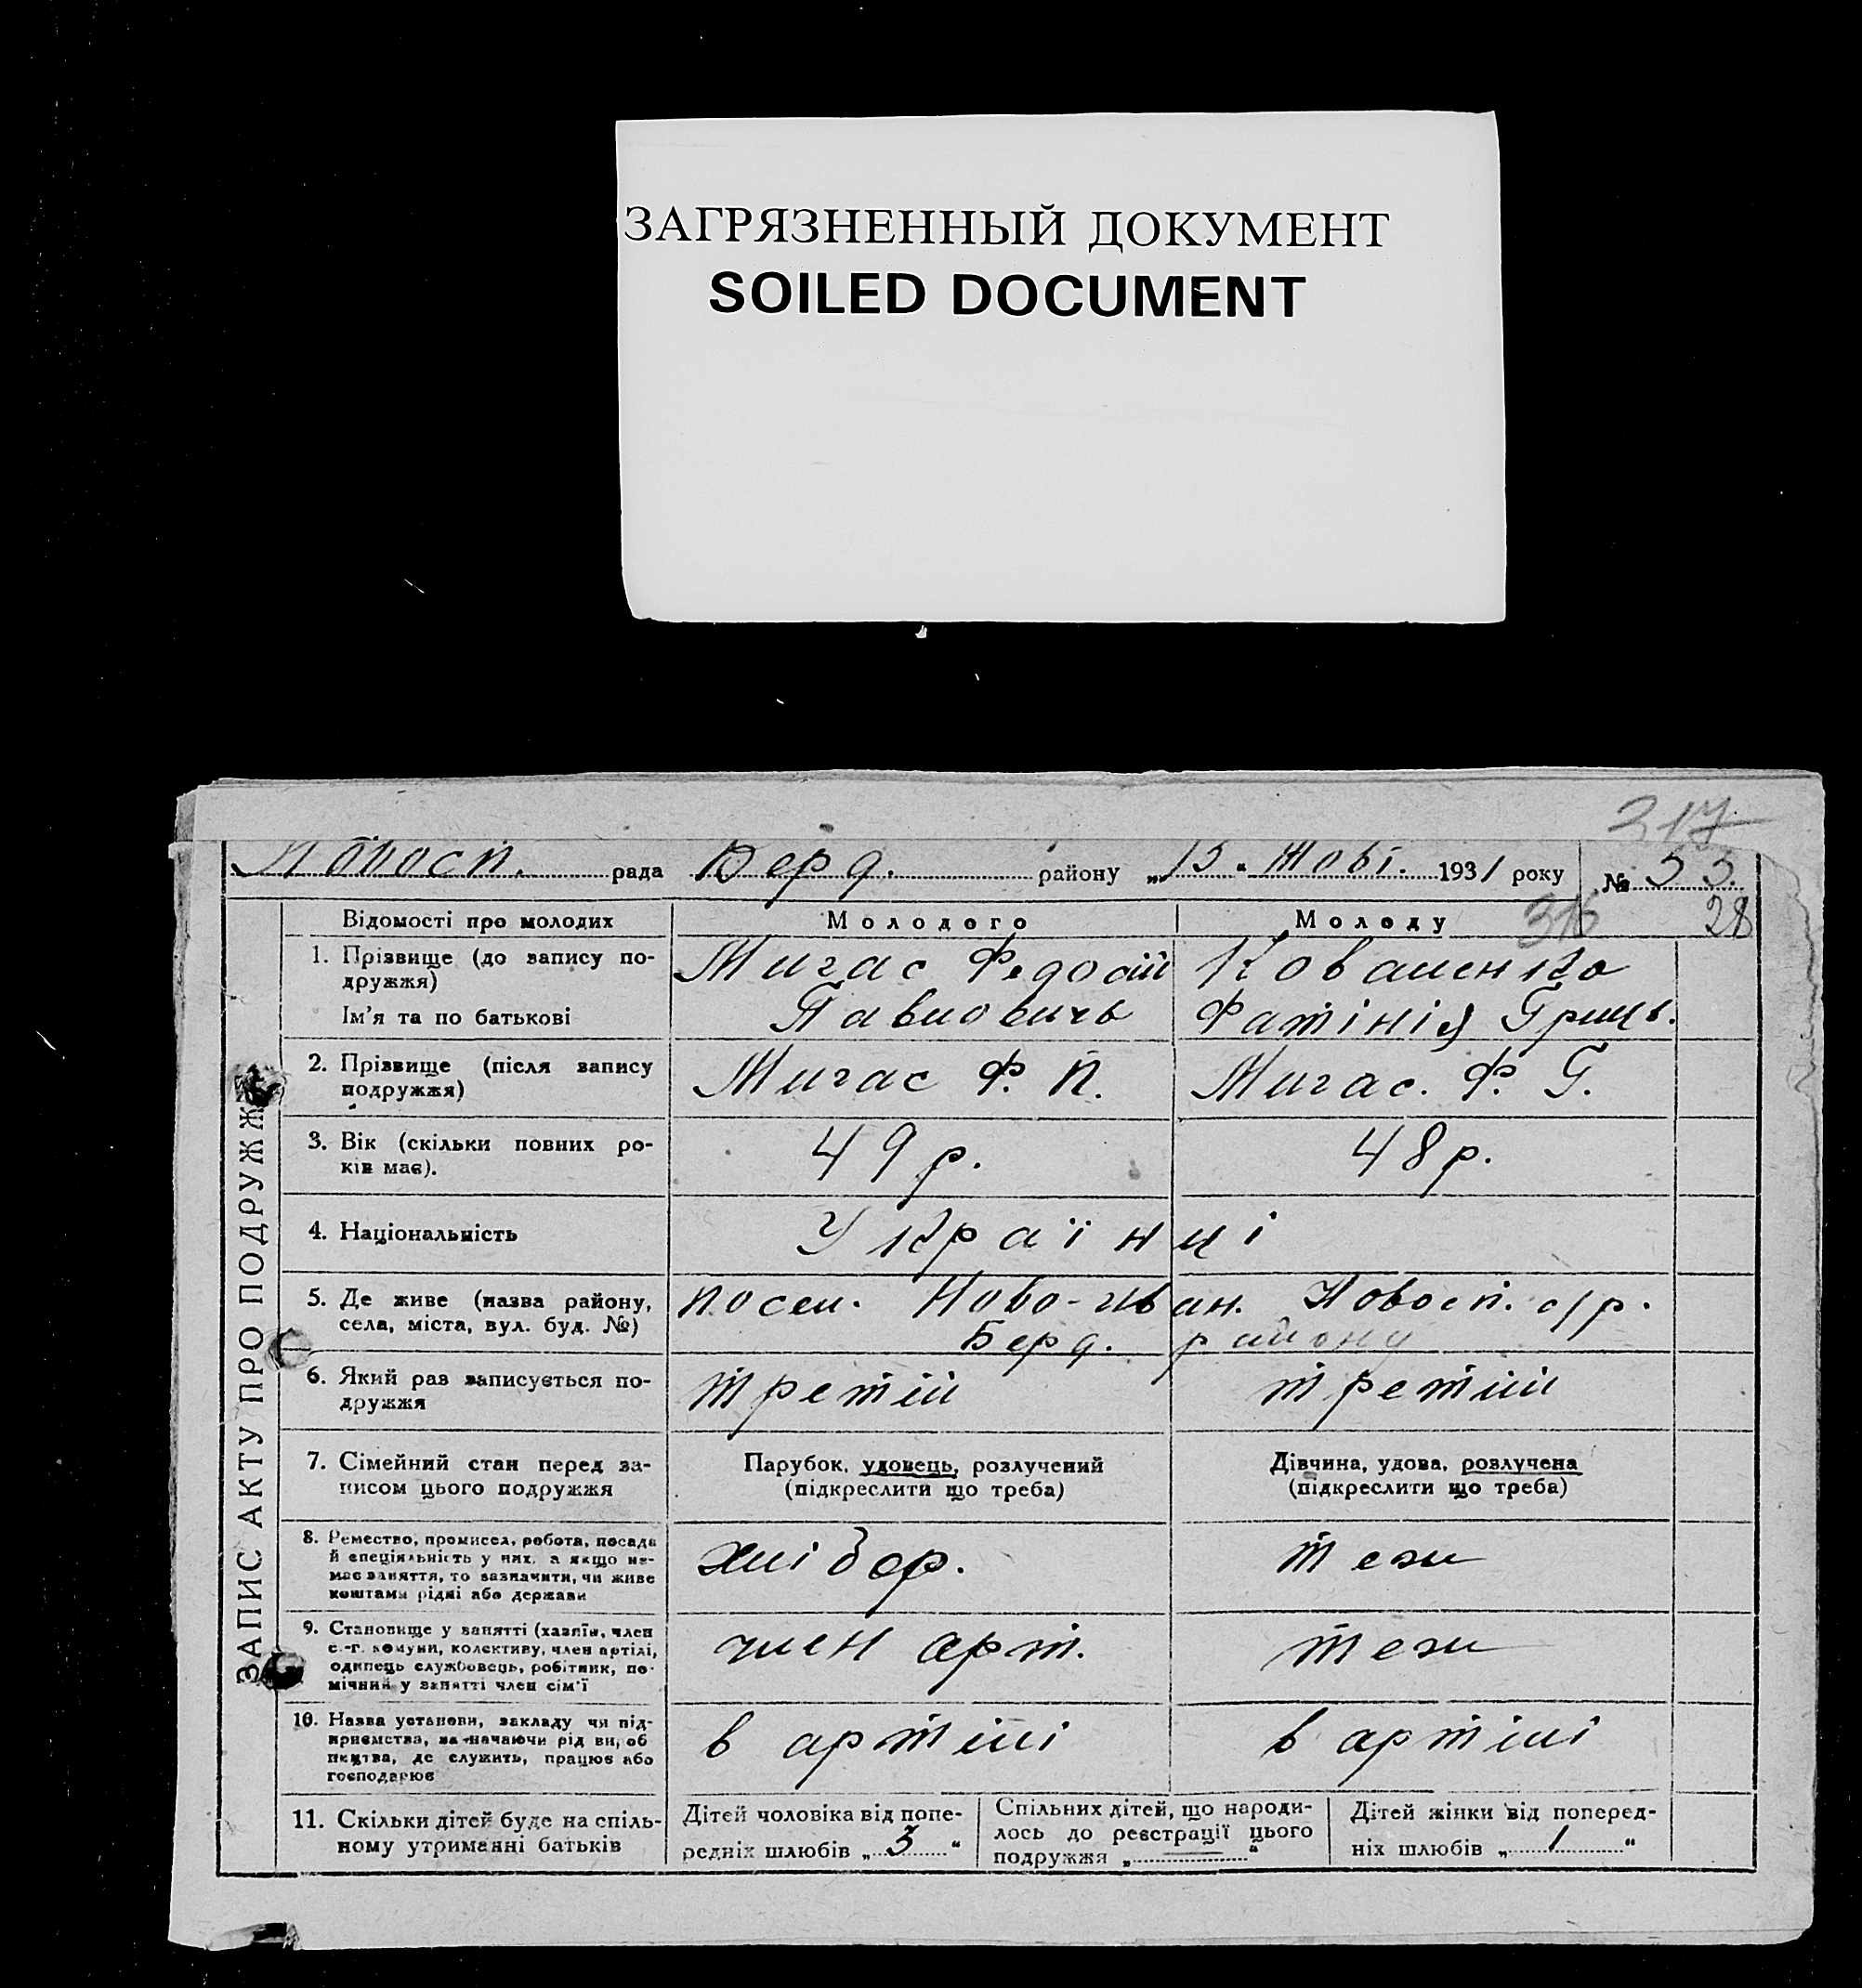 ЗАГРЯЗНЕННЫЙ ДОКУМЕНТ
SOILED DOCUMENT
317
Новосп. рада Берд. району „15“ Жовт. 1931 року № 53.
316 28
ЗАПИС АКТУ ПРО ПОДРУЖЖ
Відомості про молодих Молодого Молоду
1. Прізвище (до запису по-
дружжя)
Ім'я та по батькові
Мигас Федосій
Павлович
Коваленко
Фатінія Гриць.
2. Прізвище (після запису
подружжя)
Мигас Ф. П. Мигас. Ф. Г.
3. Вік (скільки повних ро-
ків має).
49 р. 48 р.
4. Національність
Українці
5. Де живе (назва району,
села, міста, вул. буд. №)
посел. Ново-Иван. Новосп. с/р.
Берд. району
6. Який раз записується по-
дружжя
третій третій
7. Сімейний стан перед за-
писом цього подружжя
Парубок, удовець, розлучений
(підкреслити що треба)
Дівчина, удова, розлучена
(підкреслити що треба)
8. Ремество, промисел, робота, посада
й спеціяльність у них, а якщо не-
має заняття, то зазначити, чи живе
коштами рідні або держави
хлібор. теж
9. Становище у занятті (хазяїн, член
с.-г. комуни, колективу, член артілі,
одинець службовець, робітник, по-
мічний у занятті член сім'ї
член арт. теж
10. Назва установи, закладу чи під-
приємства, зазначаючи рід ви, об
ництва, де служить, працює або
господарює
в артілі в артілі
11. Скільки дітей буде на спіль-
ному утриманні батьків
Дітей чоловіка від попе-
редніх шлюбів „ 3 “
Спільних дітей, що народи-
лось до реєстрації цього
подружжя „ — “
Дітей жінки від поперед-
ніх шлюбів „ 1 “